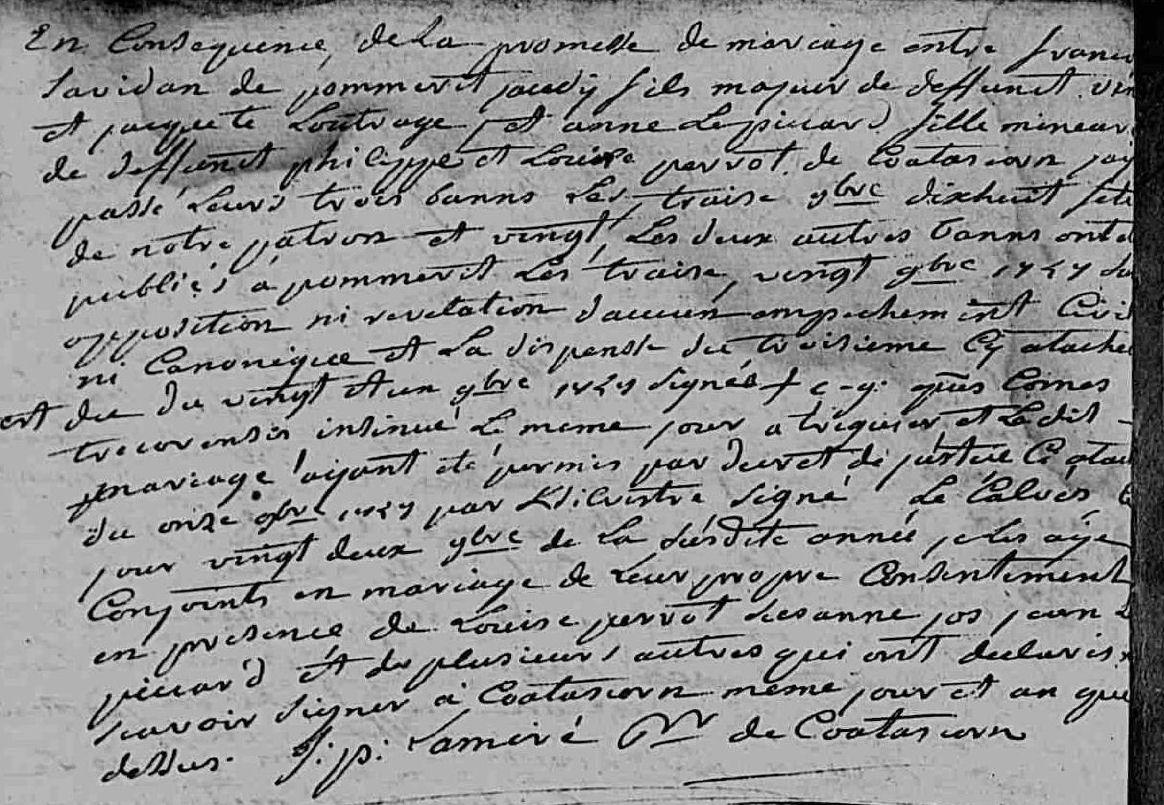 En Consequence de La promesse de mariage entre francoi
Savidan de pommerit jaudy fils majeur de deffunct vin
et jacquete Loutrage, et anne Le piccard fille mineure
de deffunct philippe et Louise perrot de Coatascorn jay
passé Leurs trois banns Les traise 9bre dixhuit fête
de notre patron et vingt, Les deux autres banns ont é
publiés á pommerit Les traise, vingt 9bre 1757 sa
opposition ni revelation daucun empechement Civil
ni Canonique et La dispense du troisieme Cy atachée
ert du du vingt et un 9bre 1757 signés c-g. Comes
trecorensis insinué Le meme jour a treguier et Ledit
mariage aijant eté permis par decret de justice Cy atac
du onze 9bre 1757 par signé Le Calvez Ce
jour vingt deux 9bre de La susdite année je Les aÿe
Conjoints en mariage de Leur propre Consentement
en presence de Louise perrot jos jean Le
piccard et de plusieurs autres qui ont declarés
scavoir signer á Coatascorn meme jour et an que
dessus. J. p. Lamiré Rr de Coatascorn